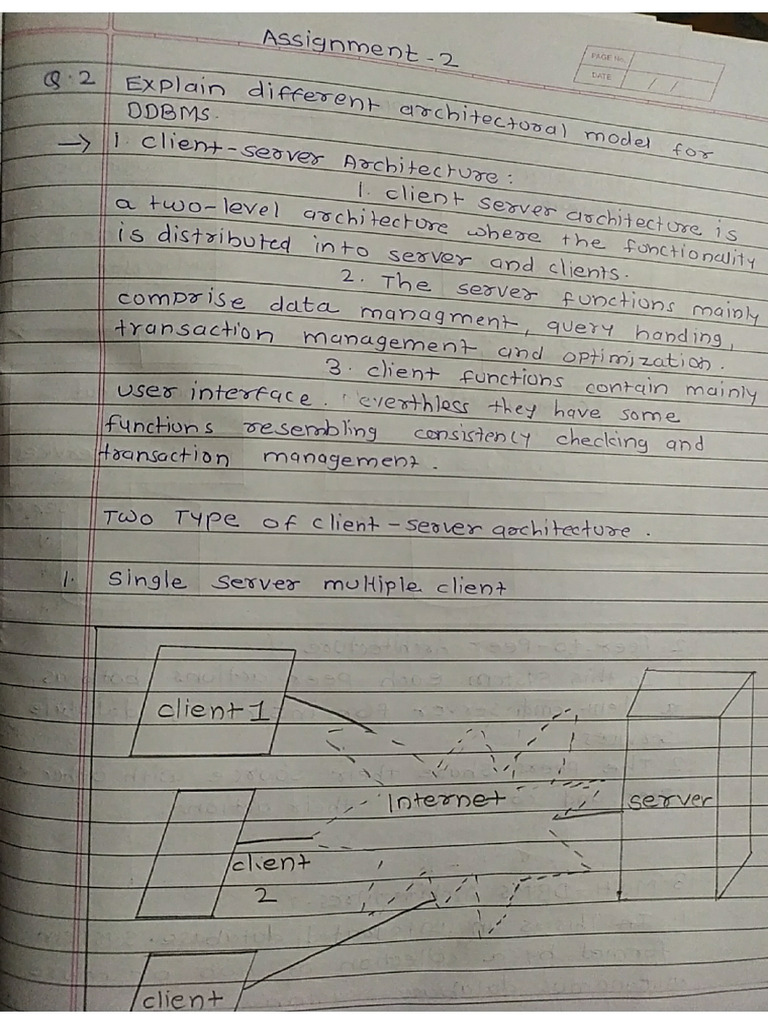 Assignment-2
PAGE No.
DATE / /
Q.2 Explain different architectural model for
DDBMS.
→ 1. client-server Architecture:
1. client server architecture is
a two-level architecture where the functionality
is distributed into server and clients.
2. The server functions mainly
comprise data managment, query handing,
transaction management and optimization.
3. client functions contain mainly
user interface. everthless they have some
functions resembling consistency checking and
transaction management.
Two Type of client-server architecture.
1. Single server multiple client
client 1
Internet
server
client
2
client